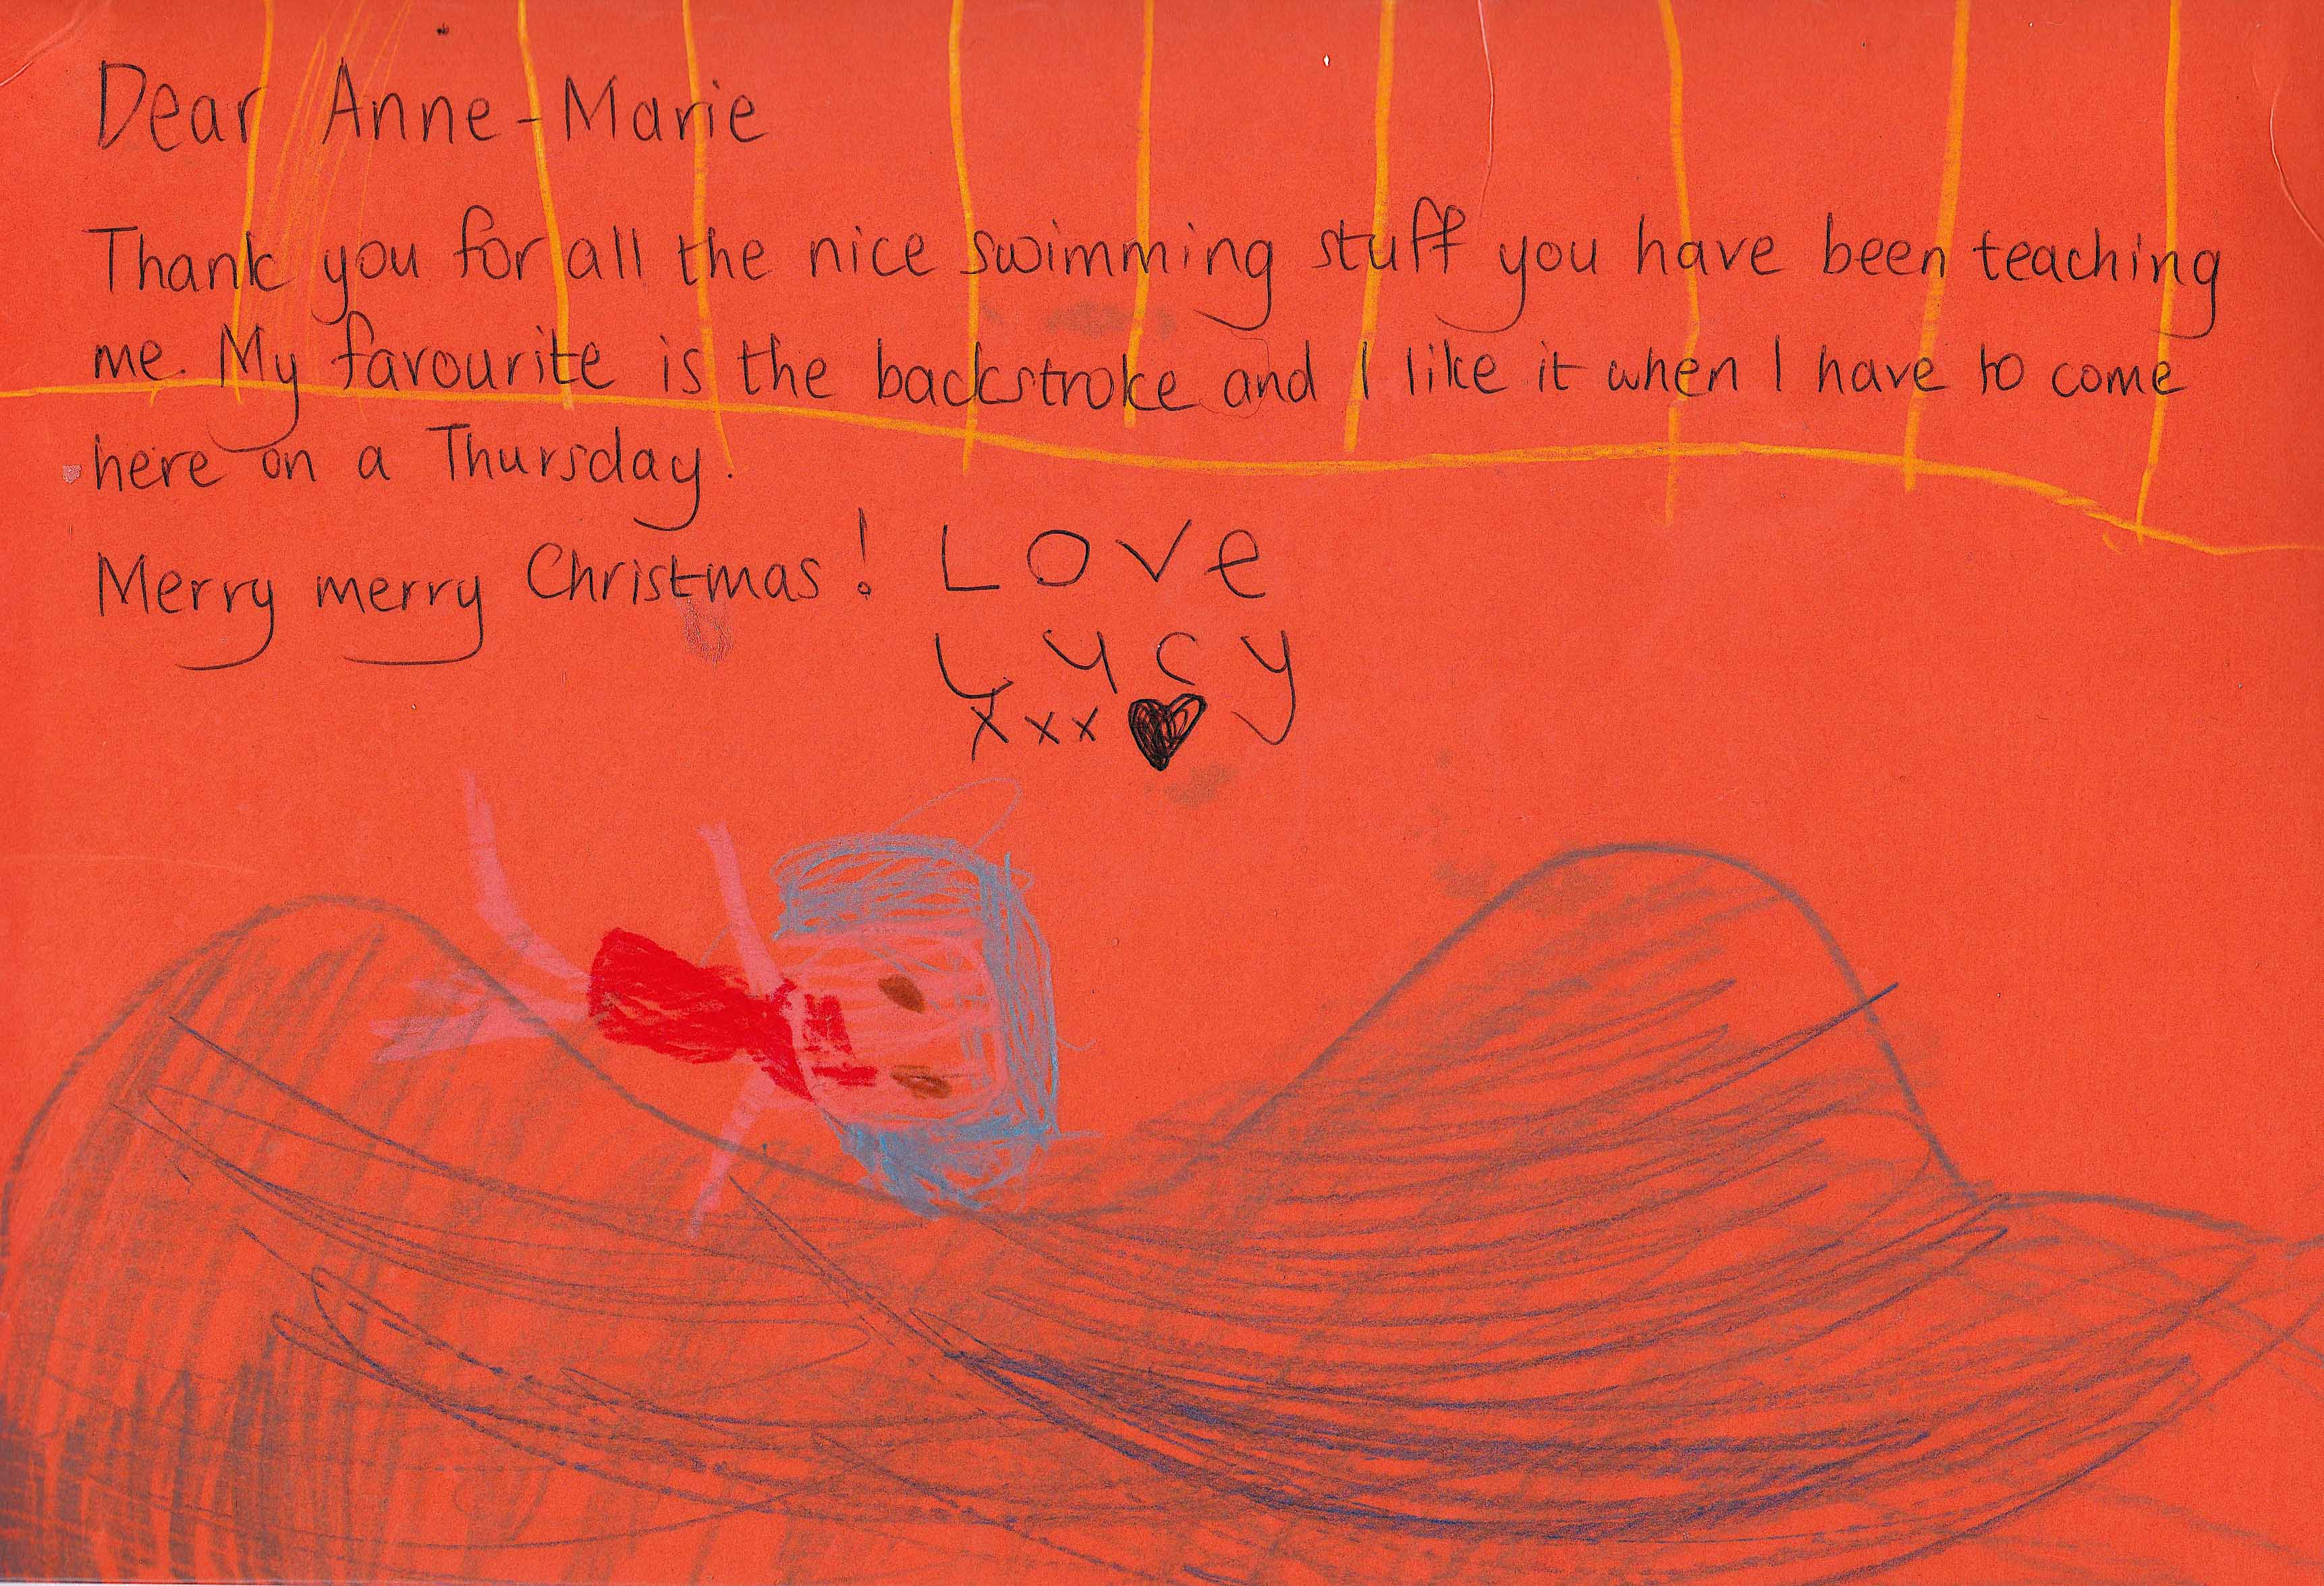 Dear Anne-Marie
Thank you for all the nice swimming stuff you have been teaching
me. My favourite is the backstroke and I like it when I have to come
here on a Thursday.
Merry merry Christmas! Love
Lucy
xxx ♥